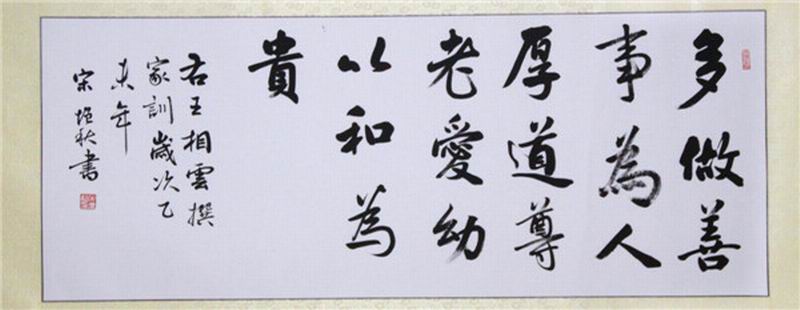 多做善
事為人
厚道尊
老愛幼
以和為
貴
右王相雲撰
家訓歲次乙
未年
宋恆秋書